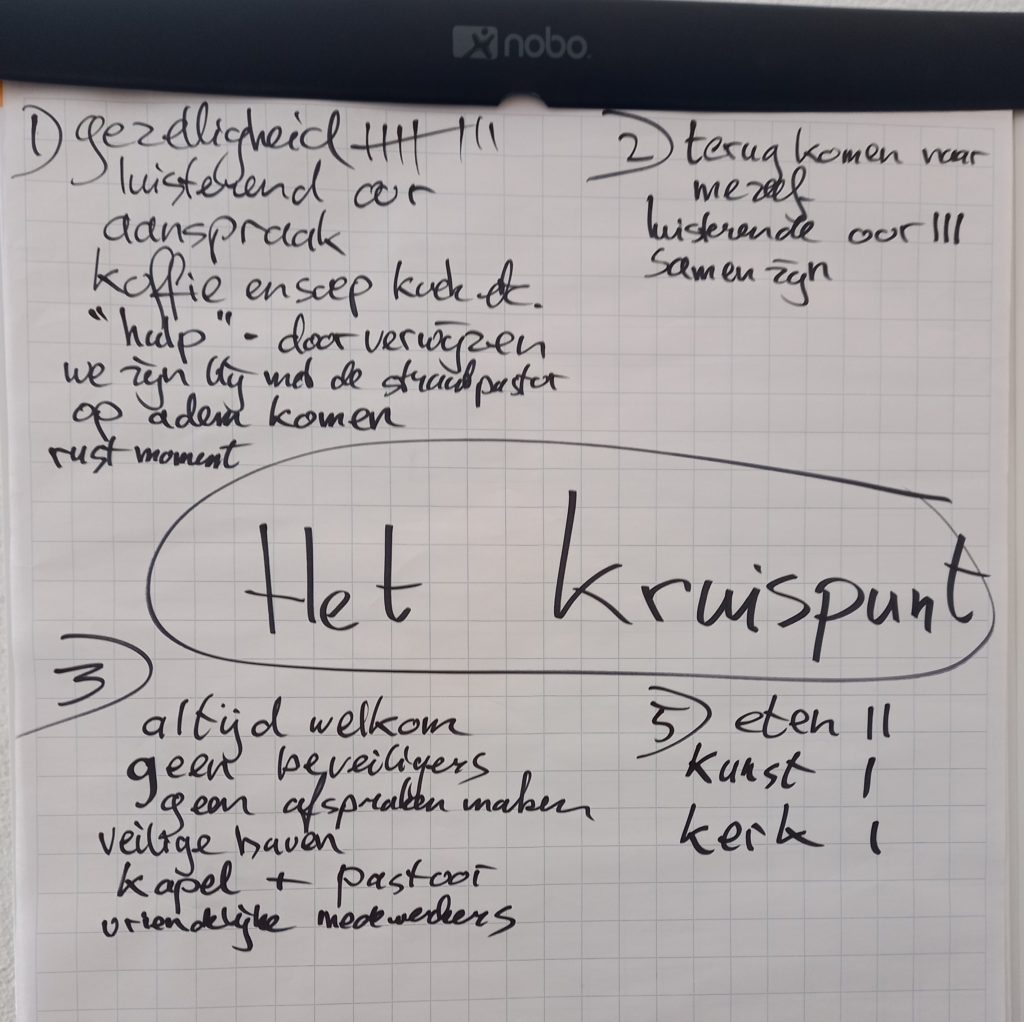 nobo
1) gezelligheid +++++ |||
luisterend oor
aanspraak
koffie en soep koek etc.
"hulp" - doorverwijzen
we zijn blij met de straatpastor
op adem komen
rust moment
2) terug komen naar
mezelf
luisterende oor |||
samen zijn
Het kruispunt
3)
altijd welkom
geen beveiligers
geen afspraken maken
veilige haven
kapel + pastoor
vriendelijke medewerkers
5) eten ||
kunst |
kerk |